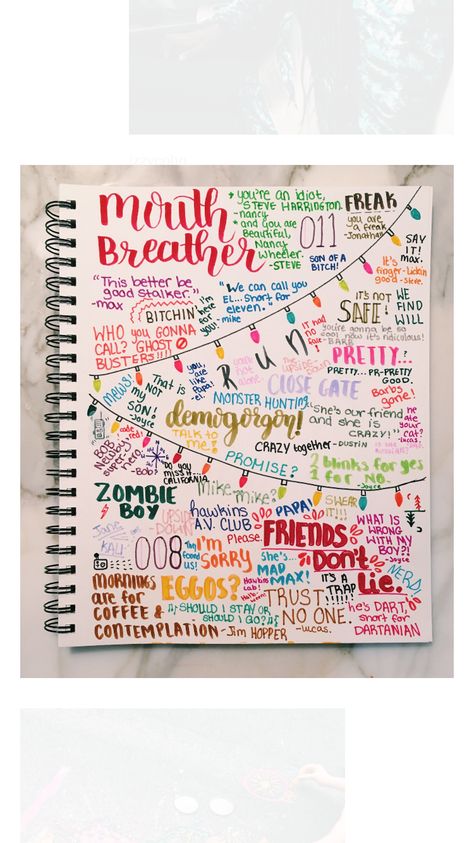 mouth
Breather
* you're an idiot,
STEVE HARRINGTON.
-nancy
and you are
Beautiful,
Nancy
Wheeler.
-STEVE
FREAK
you are
a freak
-Jonathan
011
SON OF A
BITCH!
SAY
it!
max.
It's
finger-Lickin
good-Steve.
"This better be
good stalker."
-max
"We can call you
EL...Short for
eleven."
-mike
BITCHIN'
I'm
here
for
you!
IT'S NOT
SAFE!
WE
FIND
WILL
WHO YOU GONNA
CALL? GHOST
BUSTERS!!!
RUN
IT had
no
Face
-BARB
you're gonna be so
cool now it's ridiculous!
PRETTY...
PRETTY...PR-PRETTY
GOOD.
MEWS!
you
are
like
Papa!
The
upside
Down
CLOSE GATE
Barb's
gone!
That is
NOT
my
SON!
-Joyce
MONSTER HUNTING.
demogorgon!
She's our friend
and she is
CRAZY!"
-DUSTIN
he
ate
your
cat?
-lucas.
code
red!
TALK TO
me!
CRAZY together
BOB
NEWBY
SUPER
HERO
-Bob
DO YOU
MISS IT
CALIFORNIA
PROMISE?
2 blinks for yes
1 for NO.
-Joyce
ZOMBIE
BOY
Mike
Mike?
SWEAR
IT!!!
UPSIDE
DOWN
hawkins
A.V. CLUB
PAPA!
Please.
WHAT IS
WRONG
WITH MY
BOY?!
-Joyce
Jane
KALI
008
I'm
SORRY
FRIENDS
Don't
Lie.
She's...
MAD
MAX!
NERD.
MORNINGS
are FOR
COFFEE &
CONTEMPLATION
-Jim HOPPER
EGGOS?
Hawkins
Lab!
IT'S A
TRAP
!!!!!
SHOULD I STAY OR
SHOULD I GO?
TRUST
NO ONE.
-lucas.
he's DART,
short for
DARTANIAN